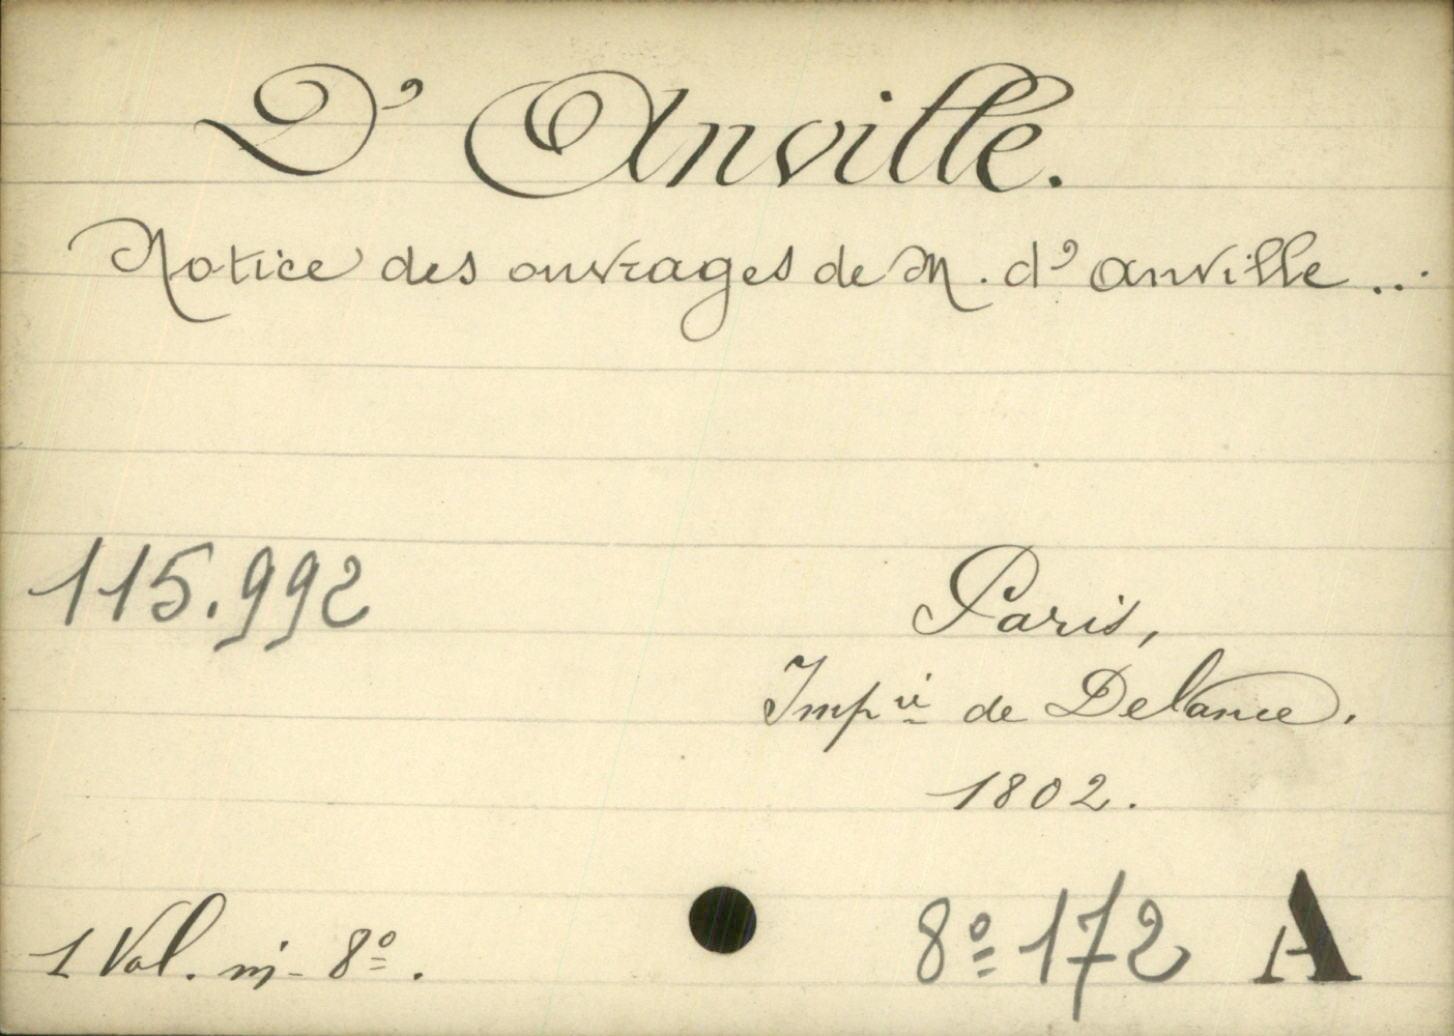 D' Anville.
Notice des ouvrages de M. d'anville...
115.992
Paris,
Imp^ie de Delance.
1802.
1 Vol. in-8°.
8° 172 A